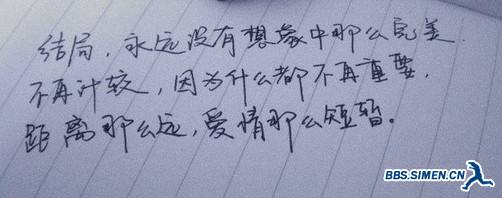 结局，永远没有想象中那么完美
不再计较，因为什么都不再重要，
距离那么远，爱情那么短暂。
BBS.SIMEN.CN